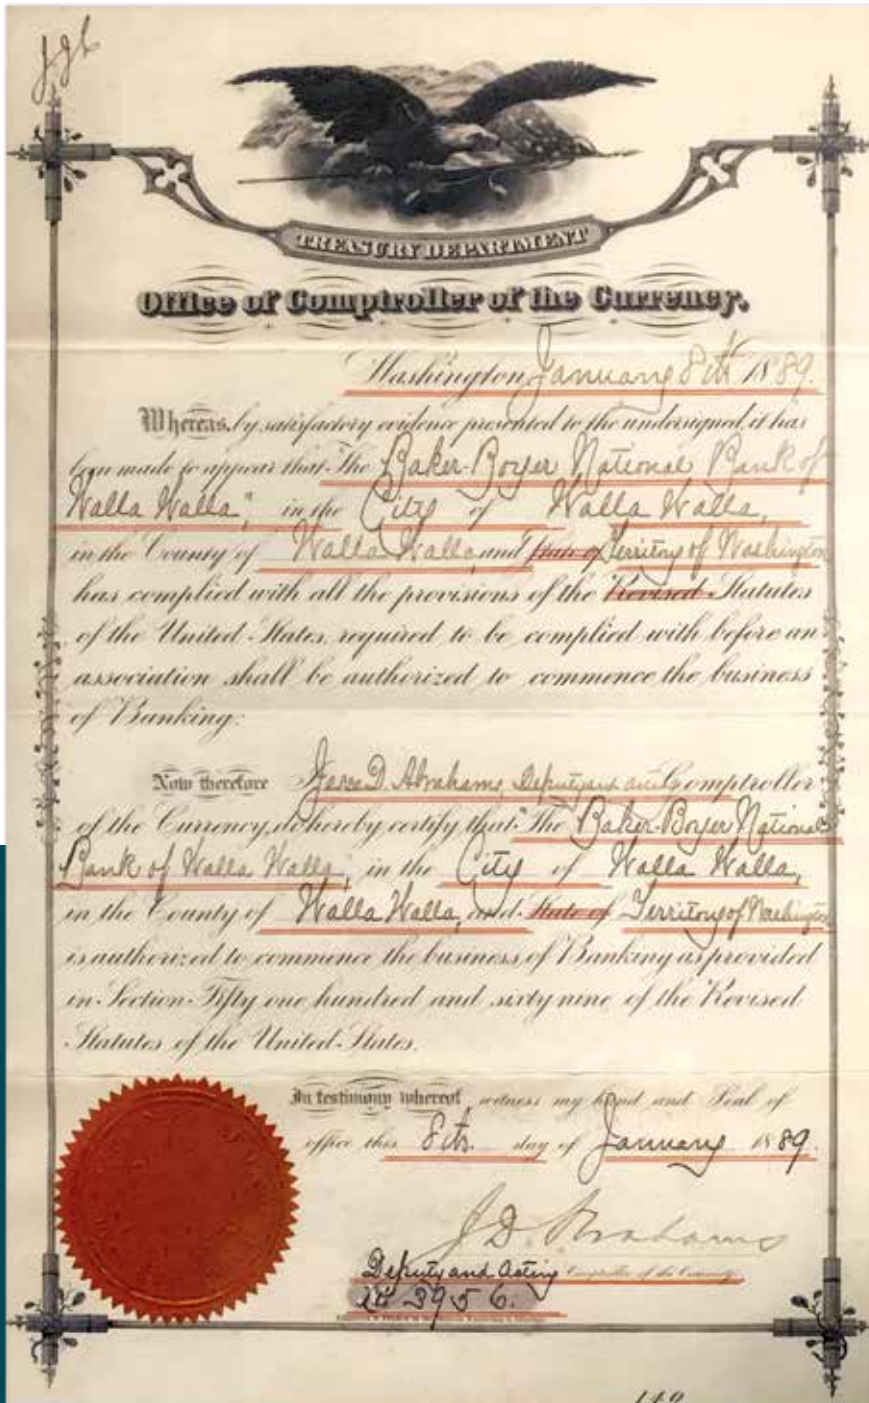 TREASURY DEPARTMENT
Office of Comptroller of the Currency.
Washington, January 8th 1889.
Whereas, by satisfactory evidence presented to the undersigned, it has
been made to appear that "The Baker-Boyer National Bank of
Walla Walla", in the City of Walla Walla,
in the County of Walla Walla, and State of Territory of Washington
has complied with all the provisions of the Revised Statutes
of the United States, required to be complied with before an
association shall be authorized to commence the business
of Banking:
Now therefore I Jesse D. Abrahams, Deputy and Comptroller
of the Currency, do hereby certify that "The Baker-Boyer National
Bank of Walla Walla", in the City of Walla Walla,
in the County of Walla Walla, and State of Territory of Washington
is authorized to commence the business of Banking as provided
in Section Fifty one hundred and sixty nine of the Revised
Statutes of the United States.
In testimony whereof, witness my hand and Seal of
office this 8th day of January 1889.
J D Abrahams
Deputy and Acting Comptroller of the Currency.
No 3956.